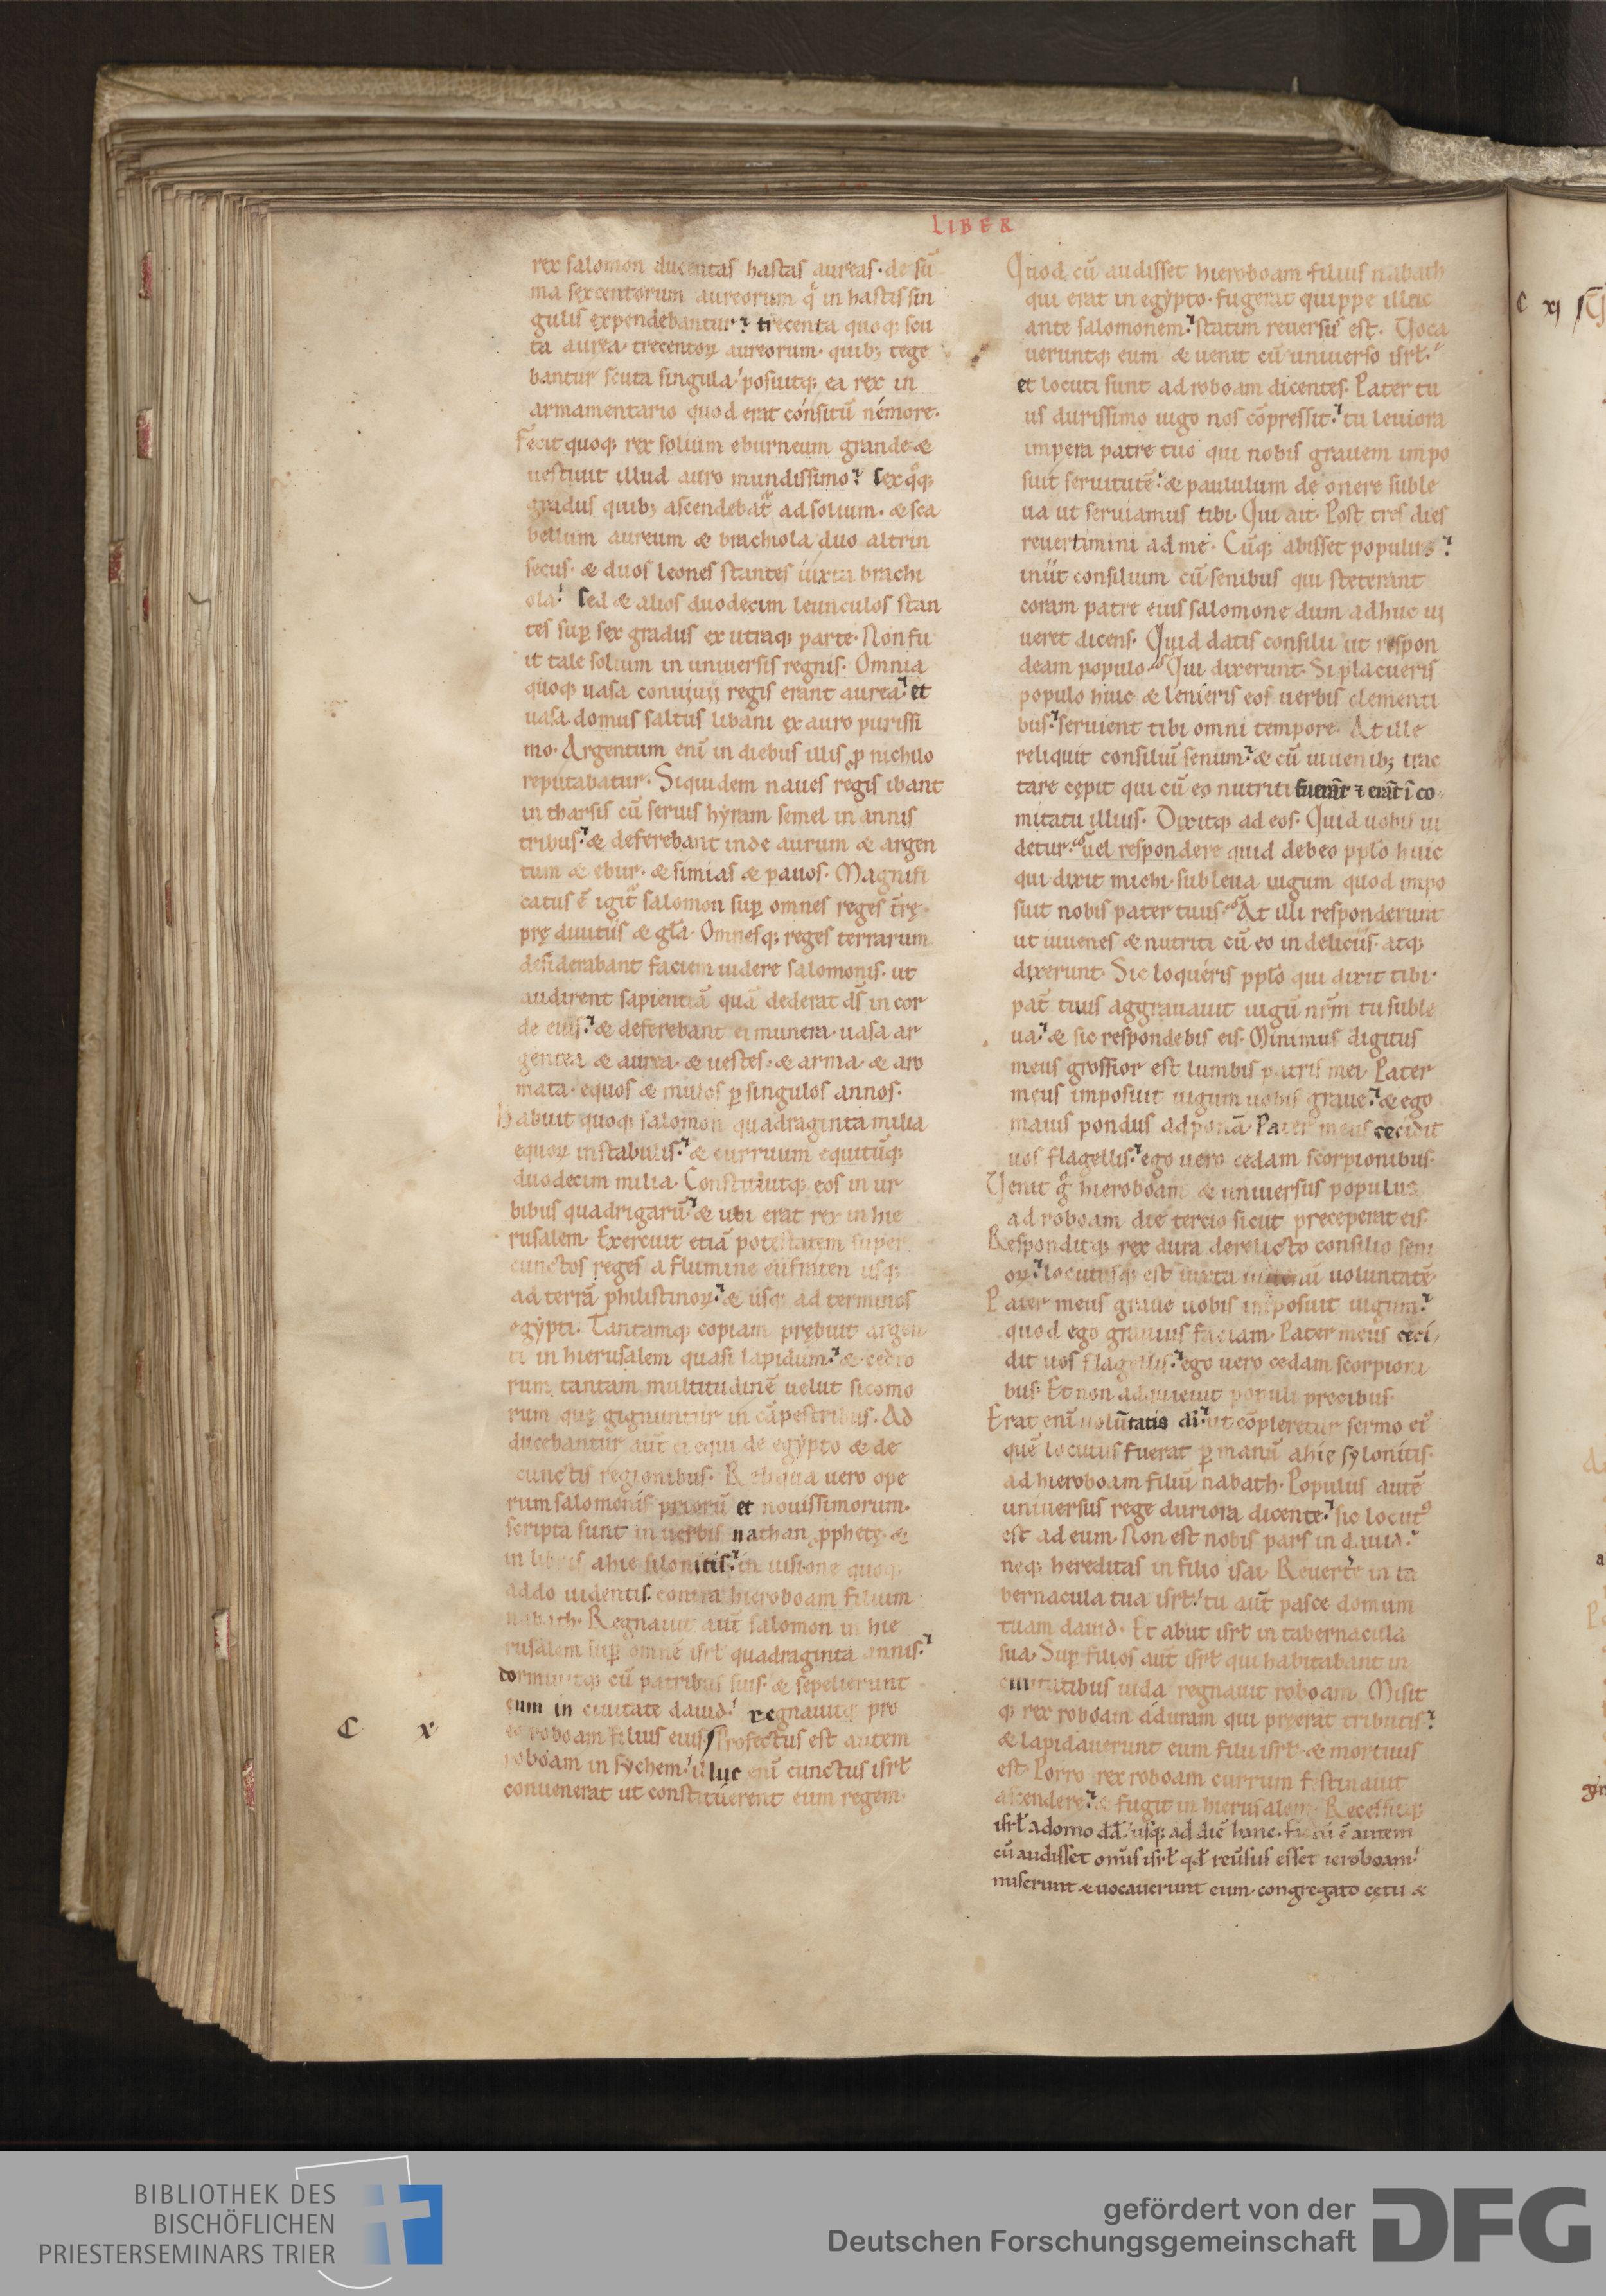 LIBER
rex salomon ducentas hastas aureas· de sū
ma sexcentorum aureorum q̄ in hastis sin
gulis expendebantur? trecenta quoq; scu
ta aurea· trecentoꝝ aureorum· quib; tege
bantur scuta singula! posuitq; ea rex in
armamentario quod erat consitū nemore·
Fecit quoq; rex solium eburneum grande &
uestiuit illud auro mundissimo? sex q̊q;
gradus quib; ascendebat᷑ ad solium· & sca
bellum aureum & brachiola duo altrin
secus· & duos leones stantes iuxta brachi
ola! sed & alios duodecim leunculos stan
tes suꝑ sex gradus ex utraq; parte· Non fu
it tale solium in uniuersis regnis· Omnia
quoq; uasa conuiuii regis erant aurea? et
uasa domus saltus libani ex auro purissi
mo· Argentum enī in diebus illis ꝓ nichilo
reputabatur· Siquidem naues regis ibant
in tharsis cū seruis hyram semel in annis
tribus? & deferebant inde aurum & argen
tum & ebur· & simias & pauos· Magnifi
catus ē igit᷑ salomon suꝑ omnes reges t̄rę
prę diuitiis & gła· Omnesq; reges terrarum
desiderabant faciem uidere salomonis· ut
audirent sapientiā quā dederat d̄s in cor
de eius? & deferebant ei munera· uasa ar
gentea & aurea· & uestes· & arma· & aro
mata· equos & mulos ꝑ singulos annos·
Habuit quoq; salomon quadraginta milia
equoꝝ in stabulis? & curruum equitūq;
duodecim milia· Constituitq; eos in ur
bibus quadrigarū? & ubi erat rex in hie
rusalem· Exercuit etiā potestatem super
cunctos reges a flumine eufraten usq;
ad terrā philistinoꝝ? & usq; ad terminos
egypti· Tantamq; copiam prębuit argen
ti in hierusalem quasi lapidum? & cedro
rum tantam multitudinē uelut sicomo
rum quę gignuntur in cāpestribus· Ad
ducebantur aut̄ ei equi de egypto & de
cunctis regionibus· Reliqua uero ope
rum salomonis priorū et nouissimorum·
scripta sunt in uerbis nathan ꝓphetę· &
in libris ahie silonitis? in uisione quoq;
addo uidentis· contra hieroboam filium
nabath· Regnauit aut̄ salomon in hie
rusalem suꝑ omnē isrł quadraginta annis?
dormiuitq; cū patribus suis· & sepelierunt
eum in ciuitate dauid! regnauitq; pro
C x
eo roboam filius eius· Profectus est autem
roboam in sychem! illuc enī cunctus isrł
conuenerat ut constituerent eum regem·
Quod cū audisset hieroboam filius nabath
qui erat in egypto· fugerat quippe illuc
ante salomonem? statim reuersus est· Uoca
ueruntq; eum & uenit cū uniuerso isrł·
et locuti sunt ad roboam dicentes· Pater tu
us durissimo iugo nos cōpressit? tu leuiora
impera patre tuo qui nobis grauem impo
suit seruitutē? & paululum de onere suble
ua ut seruiamus tibi· Qui ait· Post tres dies
reuertimini ad me· Cūq; abisset populus?
iniit consilium cū senibus qui steterant
coram patre eius salomone dum adhuc ui
ueret dicens· Quid datis consilii ut respon
deam populo· Qui dixerunt· Si placueris
populo huic & lenieris eos uerbis clementi
bus? seruient tibi omni tempore· At ille
reliquit consiliū senum? & cū iuuenib; trac
tare cępit qui cū eo nutriti fuerāt ⁊ erāt ī co
mitatu illius· Dixitq; ad eos· Quid uobis ui
detur· uel respondere quid debeo ppło huic
qui dixit michi· subleua iugum quod impo
suit nobis pater tuus· At illi responderunt
ut iuuenes & nutriti cū eo in deliciis· atq;
dixerunt· Sic loqueris ppło qui dixit tibi·
pat̄ tuus aggrauauit iugū nr̄m tu suble
ua? & sic respondebis eis· Minimus digitus
meus grossior est lumbis patris mei· Pater
meus imposuit iugum uobis graue? & ego
maius pondus adponā· Pater meus cecidit
uos flagellis? ego uero cedam scorpionibus·
Uenit g̊ hieroboam & uniuersus populus
ad roboam die tercio sicut preceperat eis·
Responditq; rex dura derelicto consilio seni
oꝝ? locutusq; est iuxta iuuenū uoluntatē·
Pater meus graue uobis imposuit iugum?
quod ego grauius faciam· Pater meus ceci
dit uos flagellis? ego uero cedam scorpioni
bus· Et non adquieuit populi precibus·
Erat enī uolūtatis di? ut cōpleretur sermo eiꝰ
quē locutus fuerat ꝑ manū ahię sylonitis·
ad hieroboam filiū nabath· Populus autē
uniuersus rege duriora dicente? sic locutꝰ
est ad eum· Non est nobis pars in dauid?
neq; hereditas in filio isai· Reuertere in ta
bernacula tua isrł! tu aut̄ pasce domum
tuam dauid· Et abiit isrł in tabernacula
sua· Suꝑ filios aut̄ isrł qui habitabant in
ciuitatibus iuda regnauit roboam· Misit
q; rex roboam aduram qui pręerat tributis?
& lapidauerunt eum filii isrł· & mortuus
est· Porro rex roboam currum festinauit
ascendere? & fugit in hierusalem· Recessitq;
isrł a domo d̄d· usq; ad diē hanc· factū ē autem
cū audisset omīs isrł qd̄ reūsus esset ieroboam!
miserunt & uocauerunt eum· congregato cętu &
C xj
BIBLIOTHEK DES
BISCHÖFLICHEN
PRIESTERSEMINARS TRIER
gefördert von der
Deutschen Forschungsgemeinschaft
DFG